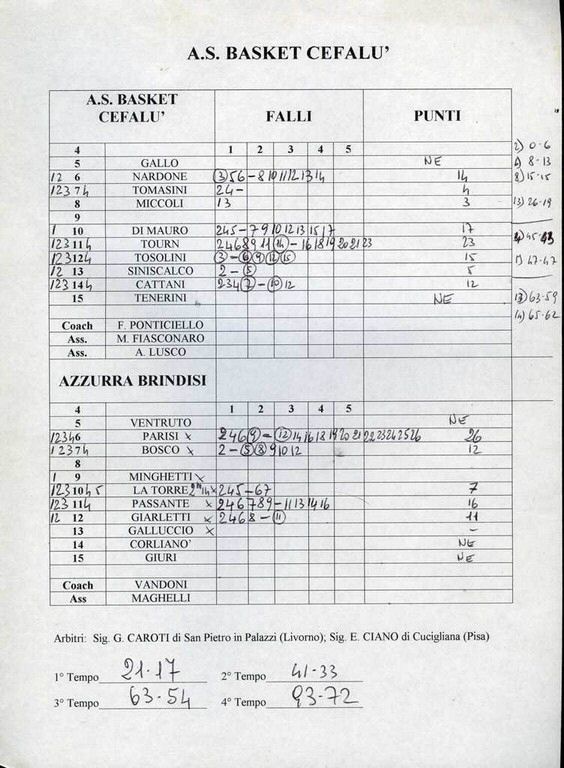 A.S. BASKET CEFALU'
A.S. BASKET CEFALU' FALLI PUNTI
4 1 2 3 4 5
5 GALLO NE
12 6 NARDONE 3 5 6 - 8 10 11 12 13 14 14
123 7 4 TOMASINI 2 4 - 4
8 MICCOLI 1 3 3
9
1 10 DI MAURO 2 4 5 - 7 9 10 12 13 15 17 17
123 11 4 TOURN 2 4 6 8 9 11 14 - 16 18 19 20 21 23 23
123 12 4 TOSOLINI 3 - 6 9 12 15 15
12 13 SINISCALCO 2 - 5 5
123 14 4 CATTANI 2 3 4 7 - 10 12 12
15 TENERINI NE
Coach F. PONTICIELLO
Ass. M. FIASCONARO
Ass. A. LUSCO
0-6
8-13
15-15
13) 26-19
47-47
63-59
65-62
AZZURRA BRINDISI
4 1 2 3 4 5
5 VENTRUTO NE
1234 6 PARISI x 2 4 6 9 - 12 14 16 18 19 20 21 22 23 24 25 26 26
123 7 4 BOSCO x 2 - 5 8 9 10 12 12
8
1 9 MINGHETTI x
123 10 4 5 LA TORRE x 2 4 5 - 6 7 7
123 11 4 PASSANTE x 2 4 6 7 8 9 - 11 13 14 16 16
12 12 GIARLETTI x 2 4 6 8 - 11 11
13 GALLUCCIO x -
14 CORLIANO' NE
15 GIURI NE
Coach VANDONI
Ass MAGHELLI
Arbitri: Sig. G. CAROTI di San Pietro in Palazzi (Livorno); Sig. E. CIANO di Cucigliana (Pisa)
1° Tempo 21-17 2° Tempo 41-33
3° Tempo 63-54 4° Tempo 93-72